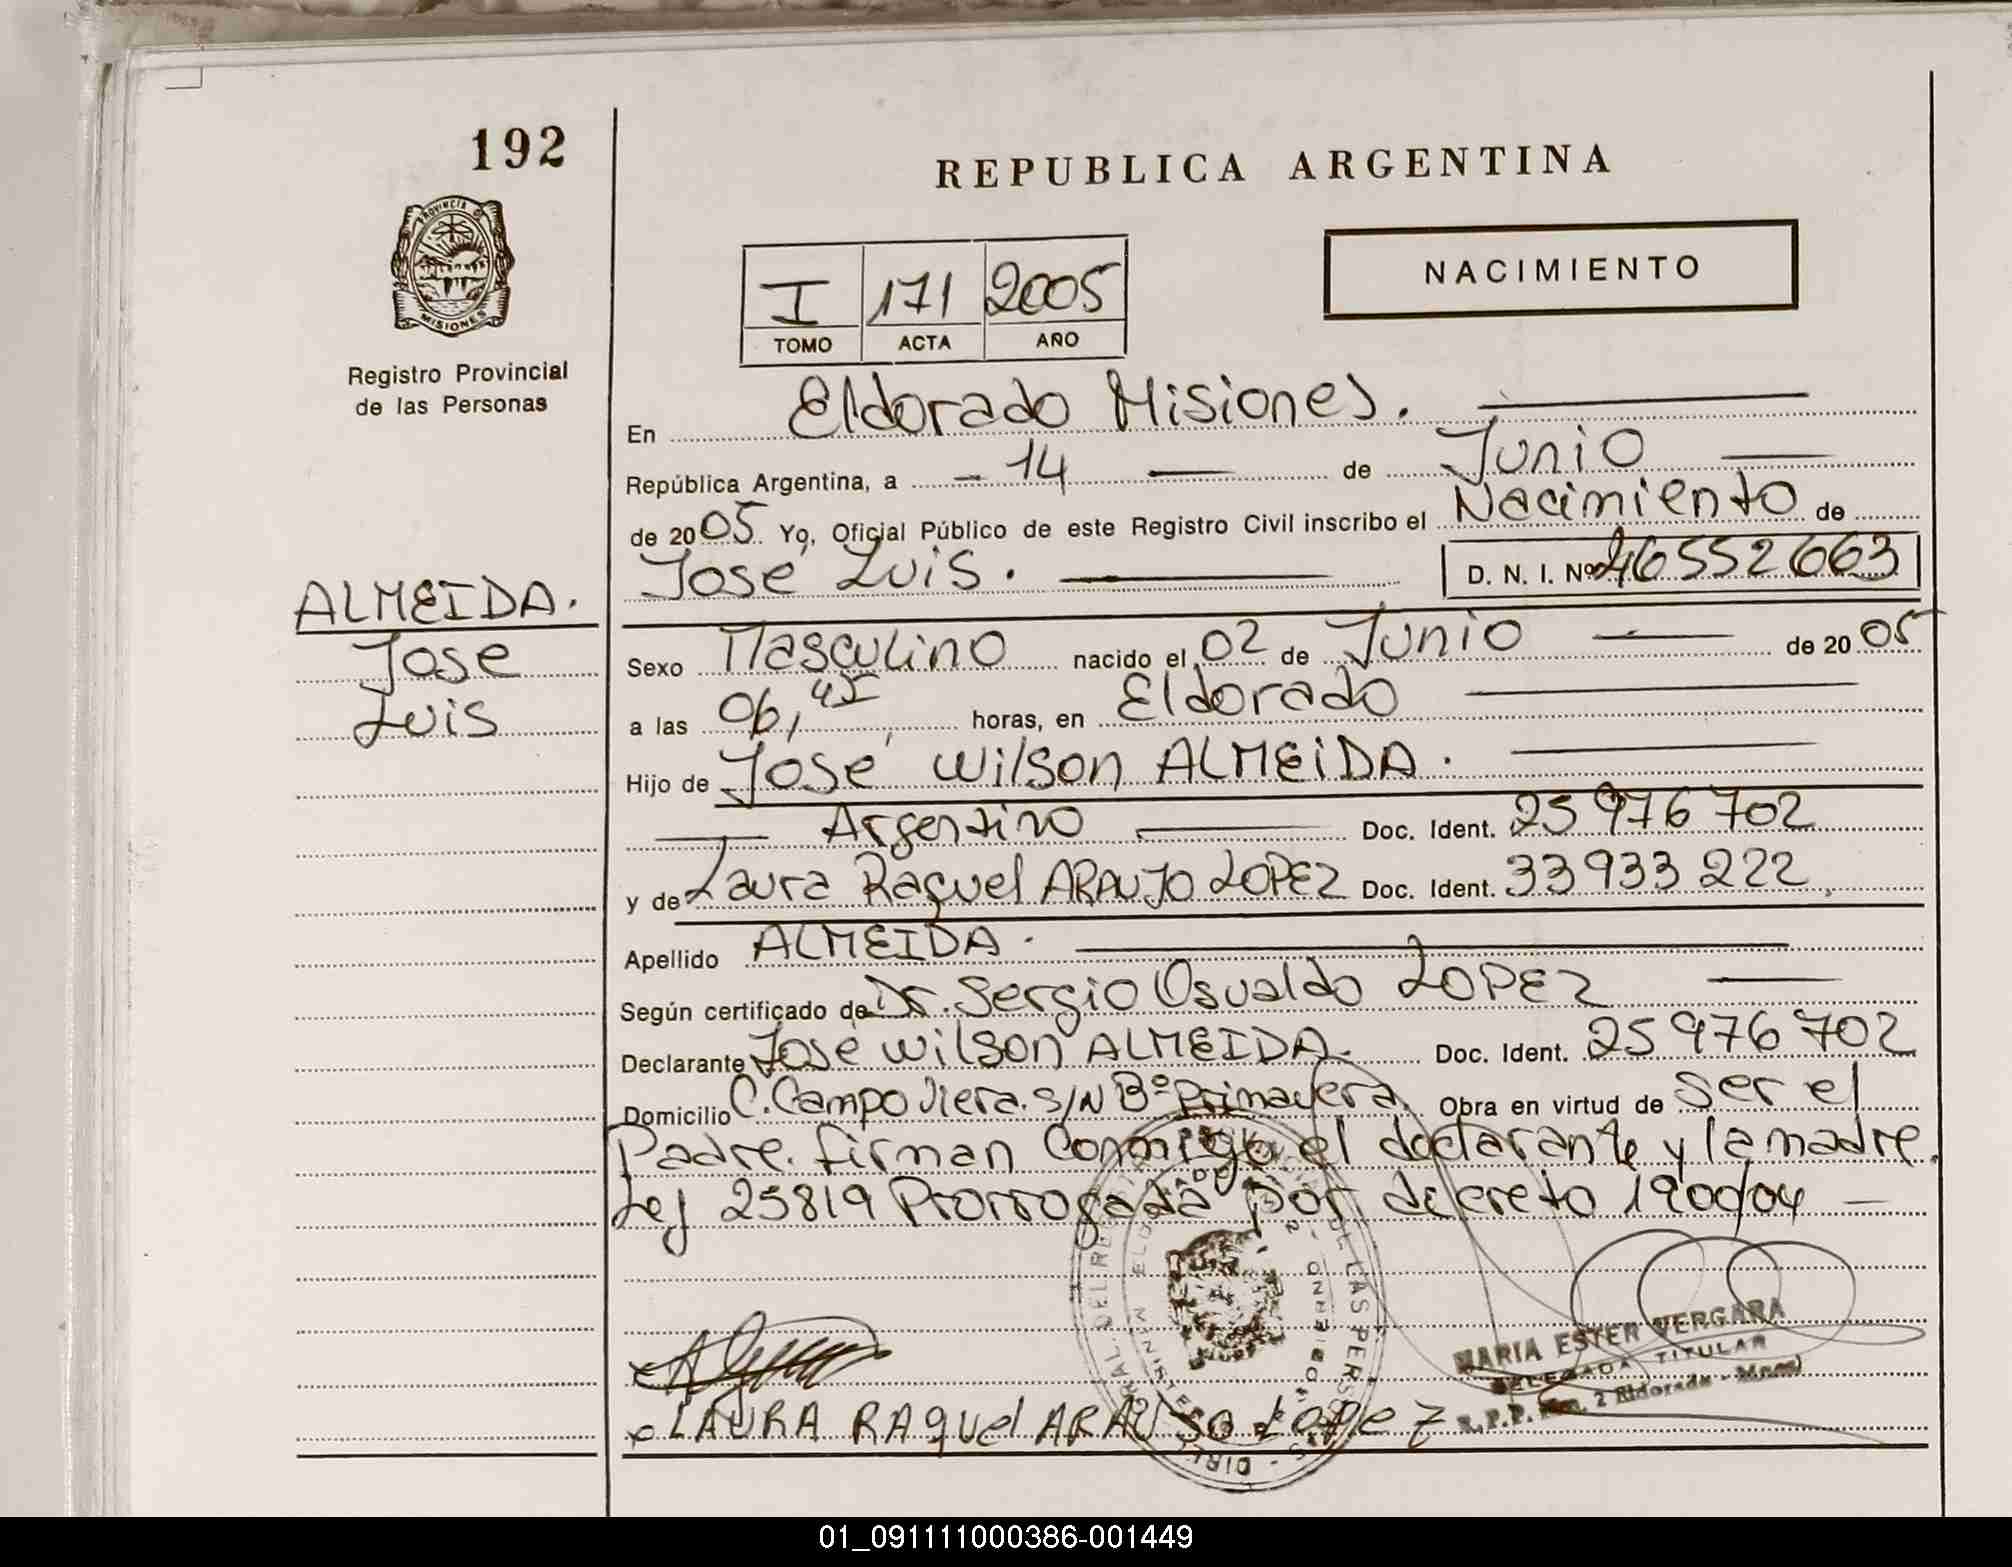 192
REPUBLICA ARGENTINA
PROVINCIA DE
MISIONES
Registro Provincial
de las Personas
NACIMIENTO
I 171 2005
TOMO ACTA AÑO
En Eldorado Misiones.
República Argentina, a - 14 — de Junio —
de 2005 Yo, Oficial Público de este Registro Civil inscribo el Nacimiento de
José Luis. — D. N. I. Nº 46552663
ALMEIDA.
Jose
Luis
Sexo Masculino nacido el 02 de Junio — de 2005
a las 06,45 horas, en Eldorado —
Hijo de José Wilson ALMEIDA. —
— Argentino — Doc. Ident. 25976702
y de Laura Raquel ARAUJO LOPEZ Doc. Ident. 33933222
Apellido ALMEIDA. —
Según certificado de Dr. Sergio Osvaldo LOPEZ —
Declarante Jose Wilson ALMEIDA. Doc. Ident. 25976702
Domicilio C. Campo Viera. S/N Bº Primavera Obra en virtud de ser el
Padre. firman conmigo el declarante y la madre.
Ley 25819 Prorrogada por decreto 1900/04 —
MARIA ESTER VERGARA
DELEGADA TITULAR
R.P.P. 2 Eldorado - Mnes)
LAURA RAquel ARAUJO LOPEZ
01_091111000386-001449